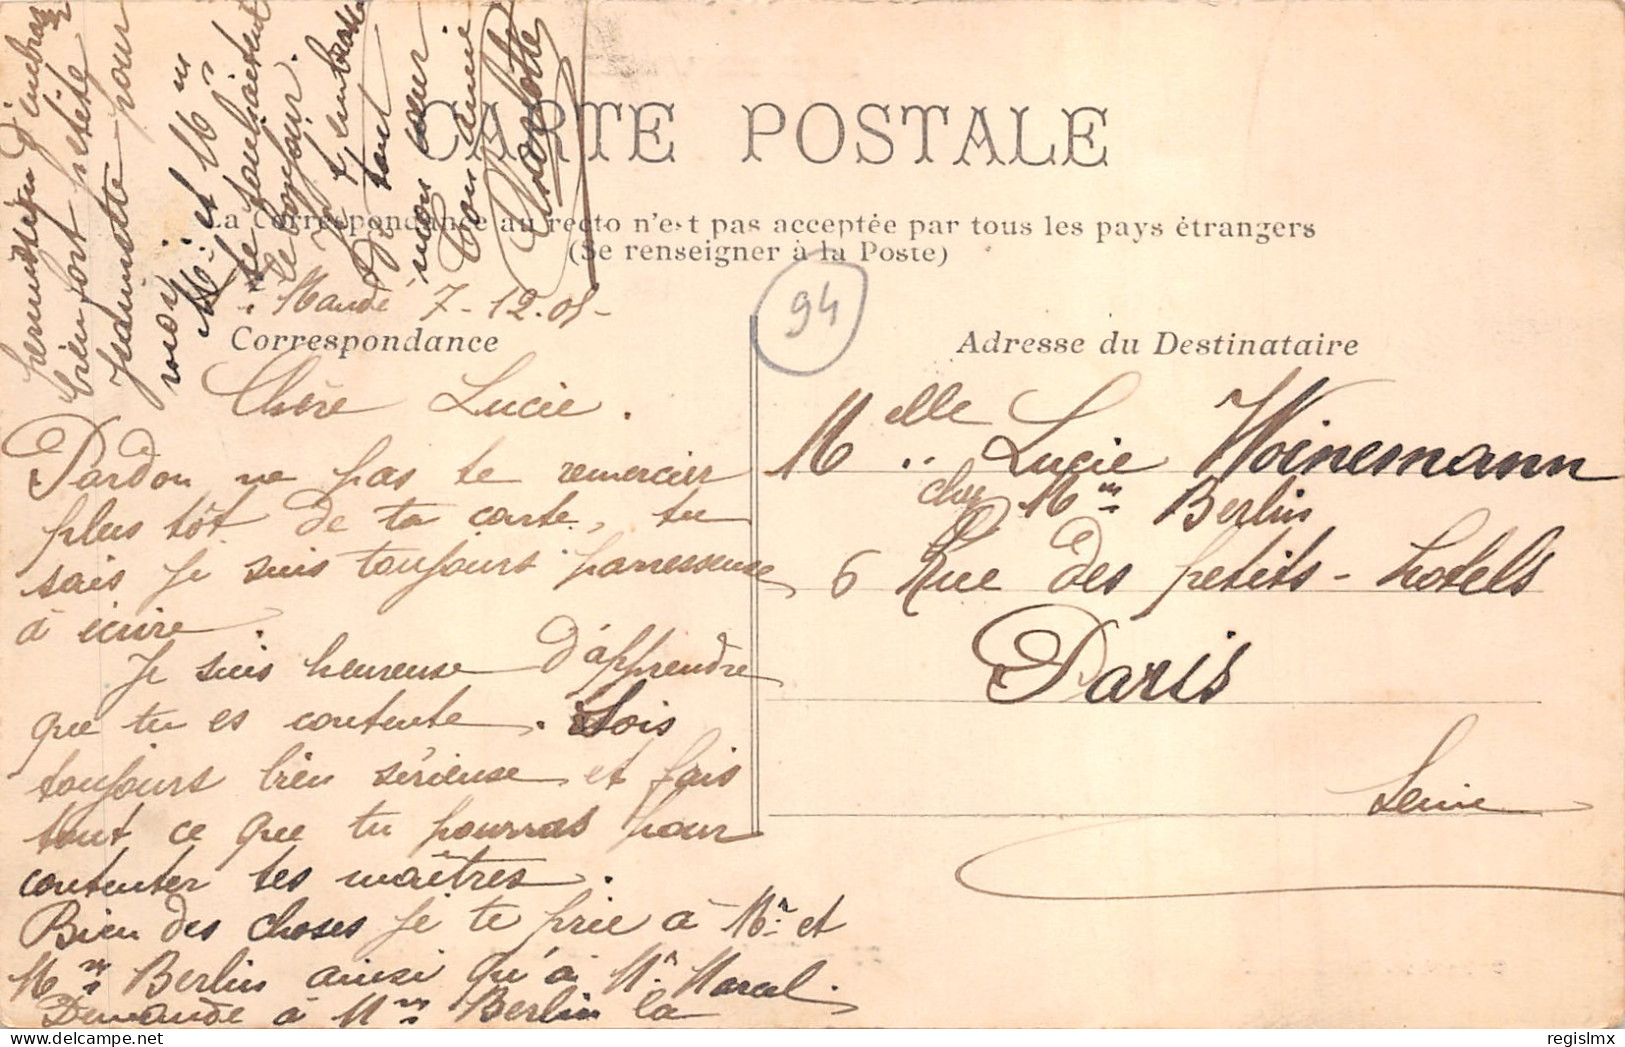 CARTE POSTALE
La Correspondance au recto n'est pas acceptée par tous les pays étrangers
(Se renseigner à la Poste)
94
Mandé 7-12-05-
Correspondance
Chère Lucie.
Pardon ne pas te remercier
plus tôt de ta carte, tu
sais je suis toujours parresseuse
à écrire
Je suis heureuse d'apprendre
que tu es contente. Sois
toujours bien sérieuse et fais
tout ce que tu pourras pour
contenter tes maîtres.
Bien des choses je te prie à Mr. et
Mm Berlin ainsi qu'à Mr Marcel.
Demande à Mm Berlin la
permission d'embrasser
bien fort petite
Jeannette pour
moi.
Mr. et Mm
te souhaitent
le bonjour.
Je t'embrasse
de tout
mon cœur
ton amie
Charlotte
Adresse du Destinataire
Melle Lucie Woinemann
chez Mm Berlin
6 Rue des petits-hotels
Paris
Seine
regislmx